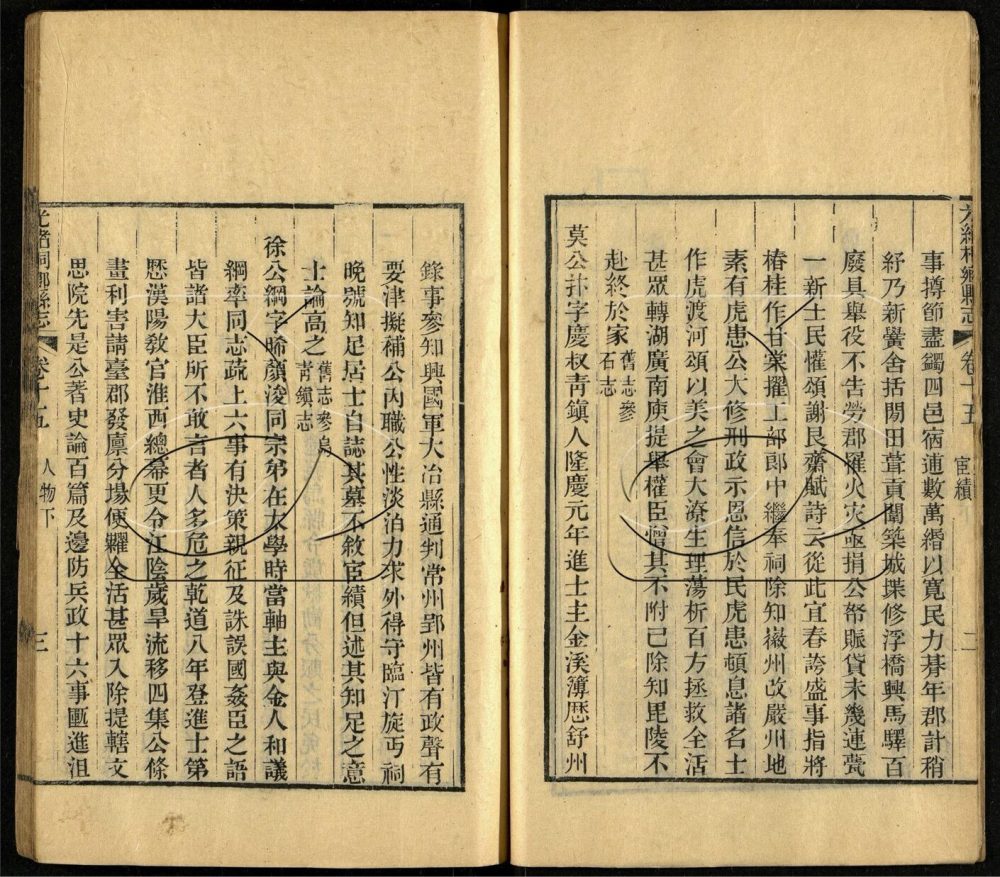 光緒桐鄉縣志 卷十五 宦績 二
事撙節盡蠲四邑宿逋數萬緡以寬民力朞年郡計稍
紓乃新黌舍括閒田葺貢闈築城堞修浮橋興馬驛百
廢具舉役不告勞郡罹火灾亟捐公帑賑貸未幾連甍
一新士民懽頌謝艮齋賦詩云從此宜春誇盛事指將
椿桂作甘棠擢工部郎中繼奉祠除知嶽州改嚴州地
素有虎患公大修刑政示恩信於民虎患頓息諸名士
作虎渡河頌以美之會大潦生理蕩析百方拯救全活
甚眾轉湖廣南庾提舉權臣憎其不附已除知毘陵不
赴終於家舊志參
石志
莫公抃字慶权青鎮人隆慶元年進士主金溪簿歷舒州
錄事參知興國軍大冶縣通判常州鄞州皆有政聲有
要津擬補公內職公性淡泊力求外得守臨汀旋丐祠
晚號知足居士自誌其墓不敘宦績但述其知足之意
士論高之舊志參烏
青鎮志
徐公綱字晞顏浚同宗弟在太學時當軸主與金人和議
綱率同志疏上六事有決策親征及誅誤國姦臣之語
皆諧大臣所不敢言者人多危之乾道八年登進士第
懸漢陽教官淮西總幕更令江陰歲旱流移四集公條
畫利害請臺郡發廩分場便糶全活甚眾入除提轄文
思院先是公著史論百篇及邊防兵政十六事匭進沮
光緒桐鄉縣志 卷十五 人物下 三